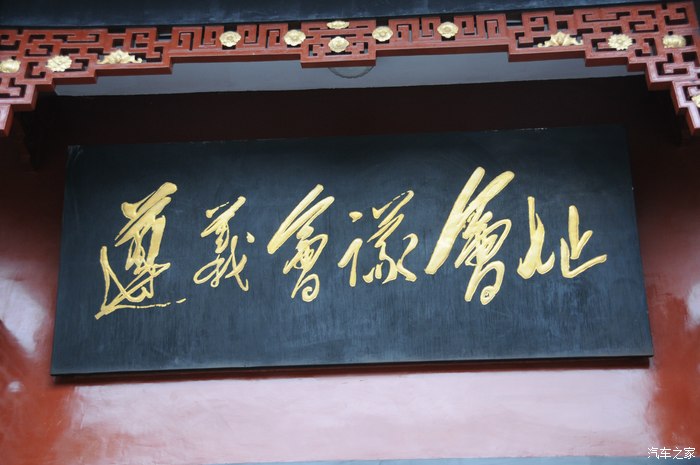 遵義會議會址
汽车之家